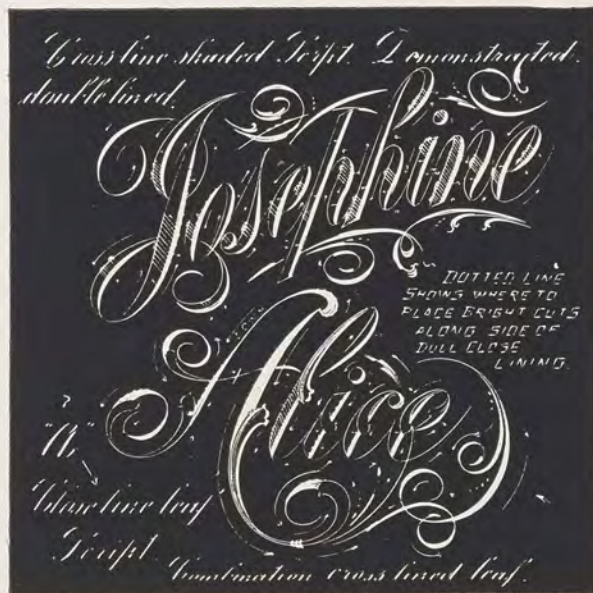 Cross line shaded Script. Demonstrated.
double lined.
Josephine
DOTTED LINE
SHOWS WHERE TO
PLACE BRIGHT CUTS
ALONG SIDE OF
DULL CLOSE
LINING.
Alice
"A"
Close line leaf
Script
Combination cross lined leaf.